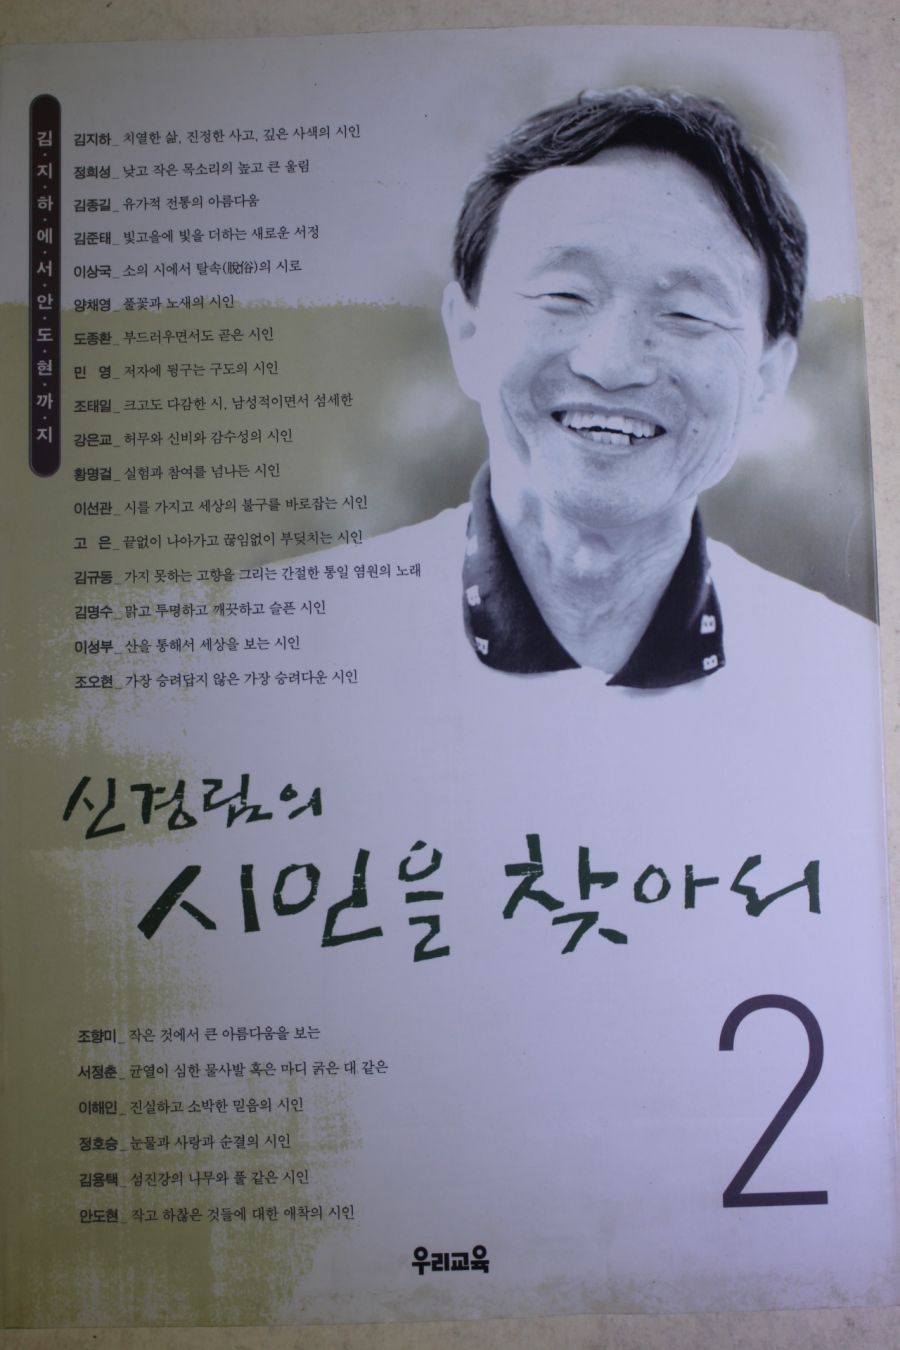 김·지·하·에·서·안·도·현·까·지
김지하_ 치열한 삶, 진정한 사고, 깊은 사색의 시인
정희성_ 낮고 작은 목소리의 높고 큰 울림
김종길_ 유가적 전통의 아름다움
김준태_ 빛고을에 빛을 더하는 새로운 서정
이상국_ 소의 시에서 탈속(脫俗)의 시로
양채영_ 풀꽃과 노새의 시인
도종환_ 부드러우면서도 곧은 시인
민 영_ 저자에 뒹구는 구도의 시인
조태일_ 크고도 다감한 시, 남성적이면서 섬세한
강은교_ 허무와 신비와 감수성의 시인
황명걸_ 실험과 참여를 넘나든 시인
이선관_ 시를 가지고 세상의 불구를 바로잡는 시인
고 은_ 끝없이 나아가고 끊임없이 부딪치는 시인
김규동_ 가지 못하는 고향을 그리는 간절한 통일 염원의 노래
김명수_ 맑고 투명하고 깨끗하고 슬픈 시인
이성부_ 산을 통해서 세상을 보는 시인
조오현_ 가장 승려답지 않은 가장 승려다운 시인
신경림의
시인을 찾아서
2
조향미_ 작은 것에서 큰 아름다움을 보는
서정춘_ 균열이 심한 물사발 혹은 마디 굵은 대 같은
이해인_ 진실하고 소박한 믿음의 시인
정호승_ 눈물과 사랑과 순결의 시인
김용택_ 섬진강의 나무와 풀 같은 시인
안도현_ 작고 하찮은 것들에 대한 애착의 시인
우리교육